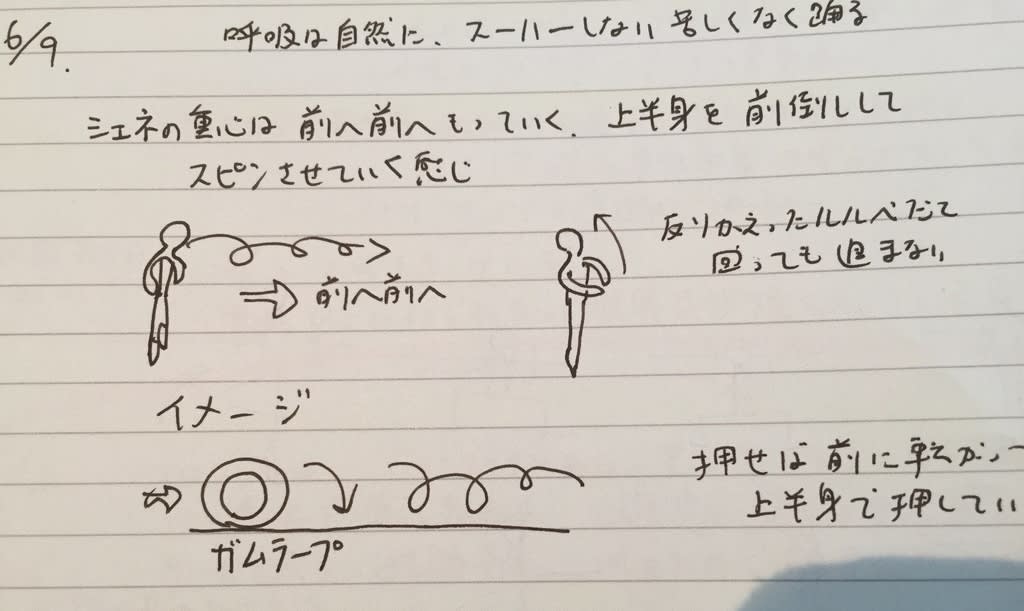 6/9.
呼吸は自然に、スーハーしない 苦しくなく踊る
シェネの重心は 前へ前へもっていく. 上半身を 前倒しして
スピンさせていく感じ
反りかえったルルベだて
回っても 進まない
前へ前へ
イメージ
押せば 前に転がっ
上半身で押してい
ガムテープ